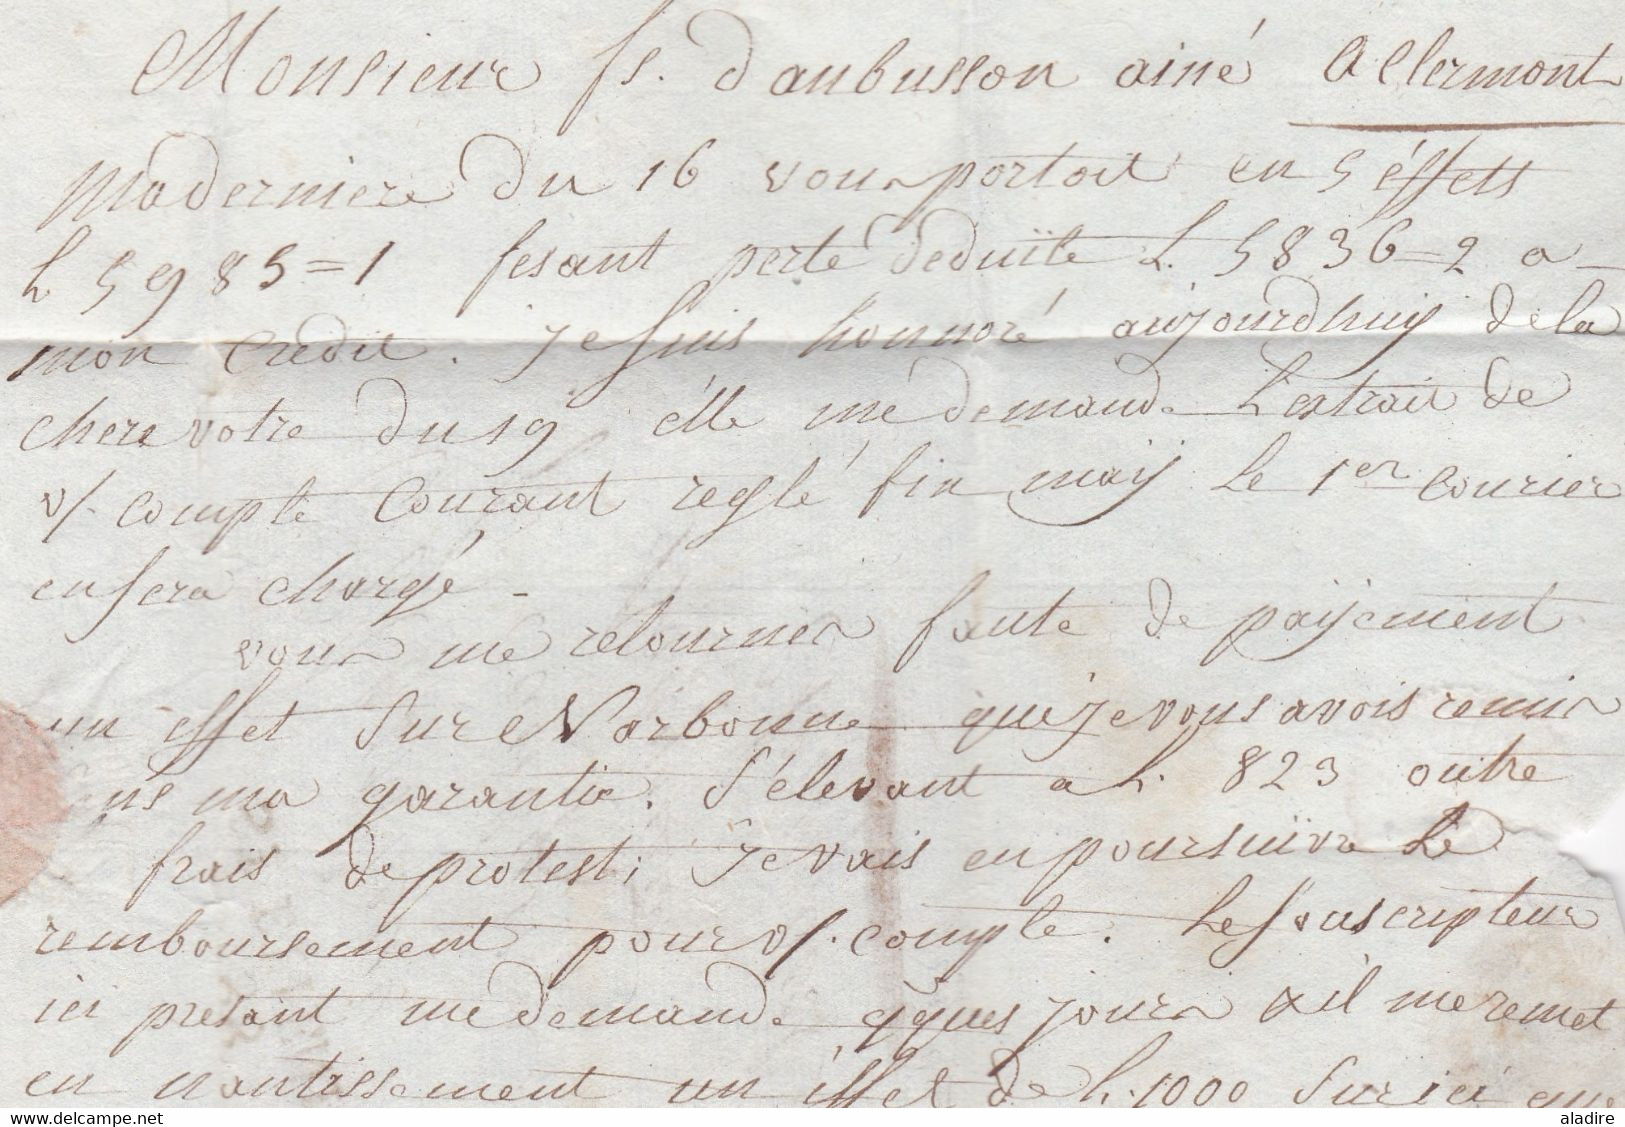 Monsieur fs. Daubusson ainé a Clermont
Ma derniere du 16 vous portoit en 5 éffets
L 5985=1 fesant perte deduïte L. 5836=2 a
mon credit. je suis honnoré aujourdhuij de la
chere votre du 19 élle me demande l'extrait de
v/. compte courant reglé fin maij le 1er courier
en sera chargé -
vous me retournes faute de paijement
un effet sur Narbonne que je vous avois remis
ns ma garantie. S'élevant a L. 823 outre
frais de protest; je vais en poursuivre le
remboursement pour v/. compte. Le souscripteur
ici présant me demande q'ques jours & il me remet
en nantissement un éffet de L. 1000 sur ici que
aladire